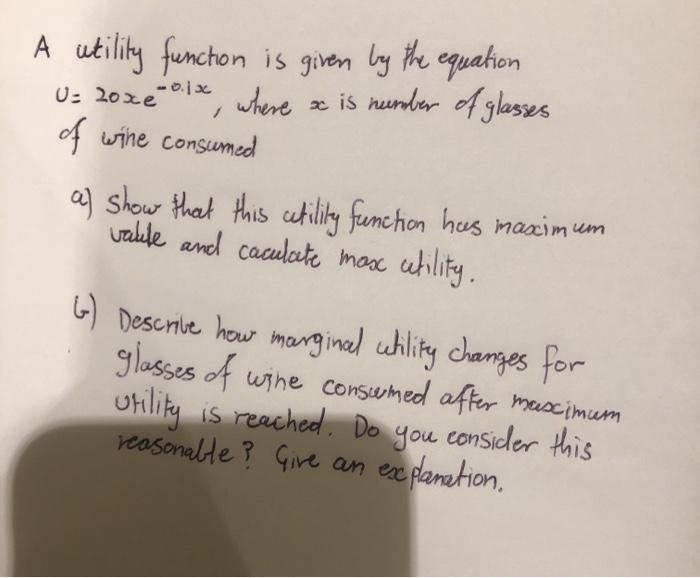 A utility function is given by the equation
U= 20xe^-0.1x, where x is number of glasses
of wine consumed
a) Show that this utility function has maximum
value and caculate max utility.
b) Describe how marginal utility changes for
glasses of wine consumed after maximum
utility is reached. Do you consider this
reasonable? Give an explanation.